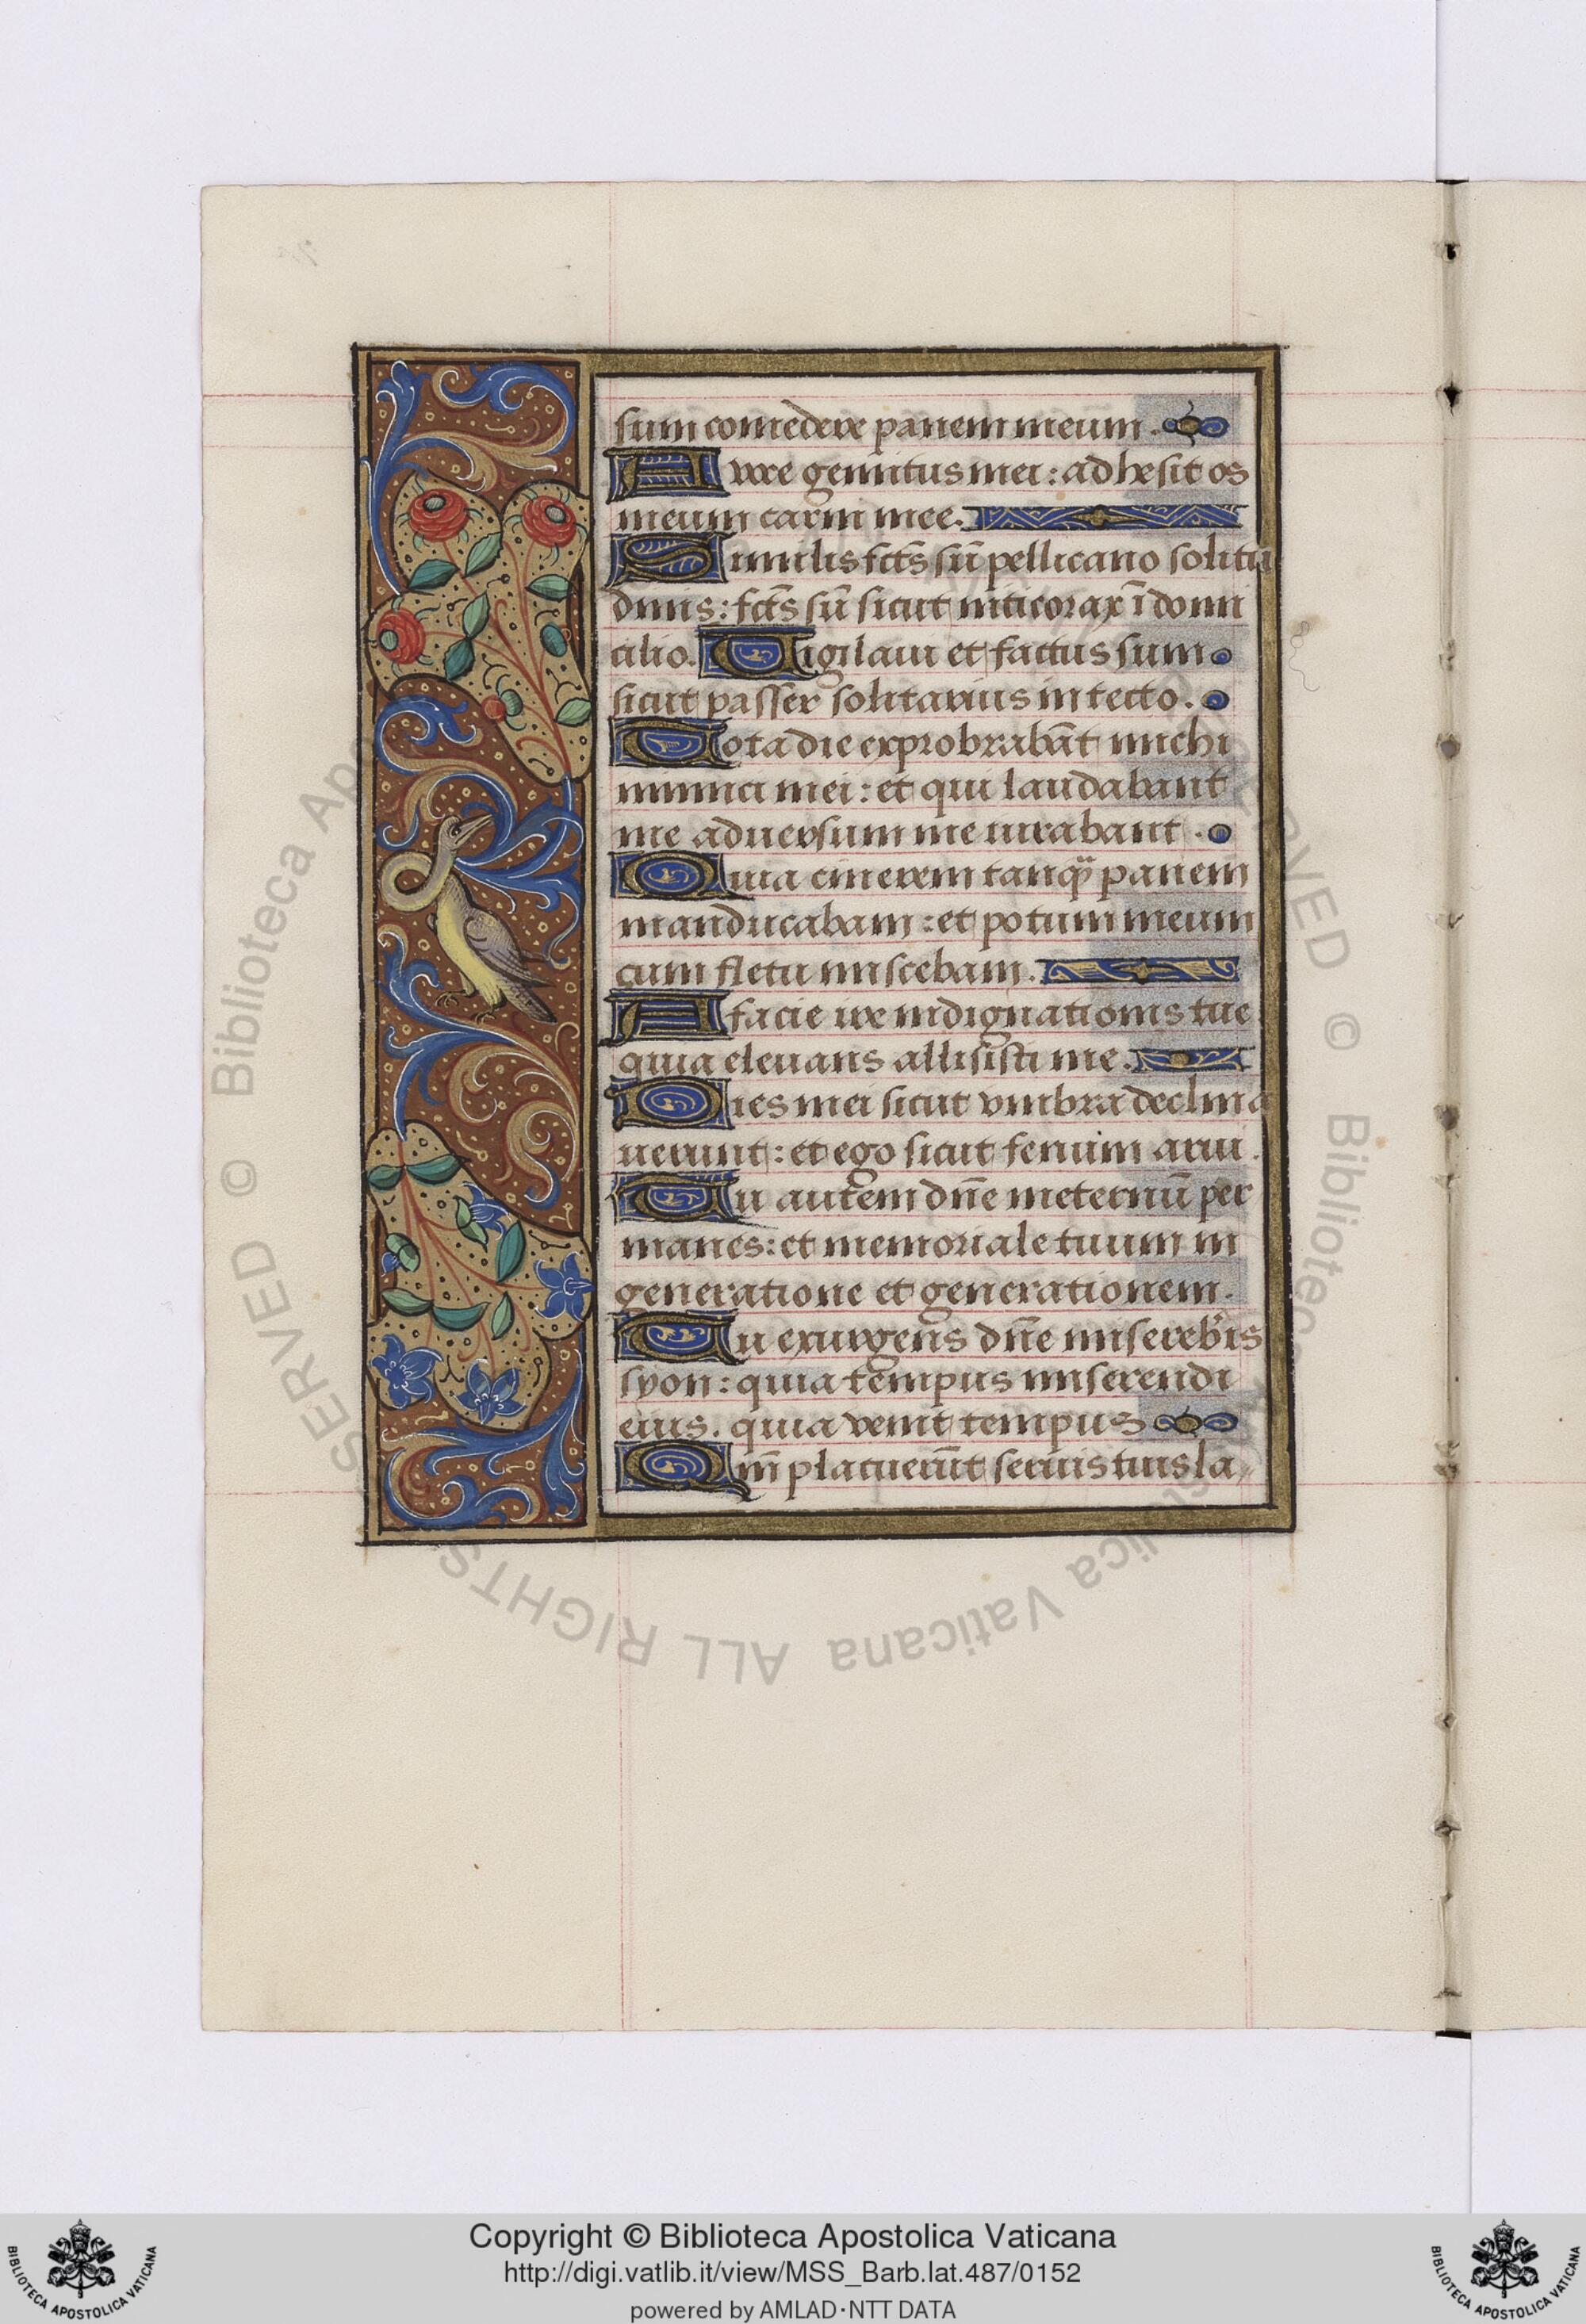 sum comedere panem meum.
A voce gemitus mei: adhesit os
meum carni mee.
Similis fcts sū pellicano solitu
dinis: fcts sū sicut niticorax ī domi
cilio. Vigilaui et factus sum
sicut passer solitarius in tecto.
Tota die exprobrabāt michi
inimici mei: et qui laudabant
me aduersum me iurabant.
Quia cinerem tanq̄ panem
manducabam: et potum meum
cum fletu miscebam.
A facie ire indignationis tue
quia eleuans allisisti me.
Dies mei sicut vmbra declina
uerunt: et ego sicut fenum arui.
Tu autem dn̄e ineternū per
manes: et memoriale tuum in
generatione et generationem.
Tu exurgens dn̄e misereb'is
syon: quia tempus miserendi
eius. quia venit tempus
Qm̄ placuerūt seruis tuis la
© Biblioteca Apostolica Vaticana ALL RIGHTS RESERVED
Copyright © Biblioteca Apostolica Vaticana
http://digi.vatlib.it/view/MSS_Barb.lat.487/0152
powered by AMLAD·NTT DATA
BIBLIOTECA APOSTOLICA VATICANA
BIBLIOTECA APOSTOLICA VATICANA